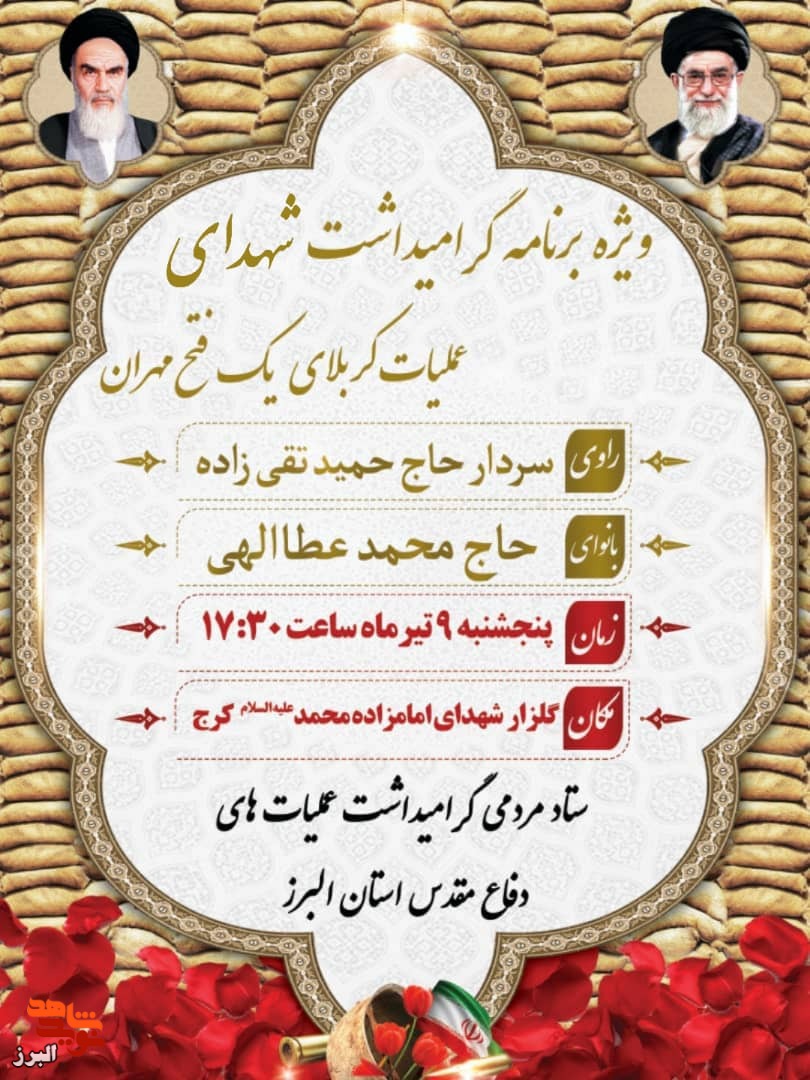 ویژه برنامه گرامیداشت شهدای
عملیات کربلای یک فتح مهران
راوی سردار حاج حمید تقی زاده
بانوای حاج محمد عطاالهی
زمان پنجشنبه ۹ تیر ماه ساعت ۱۷:۳۰
مکان گلزار شهدای امامزاده محمد علیه السلام کرج
ستاد مردمی گرامیداشت عملیات های
دفاع مقدس استان البرز
نوید شاهد
البرز